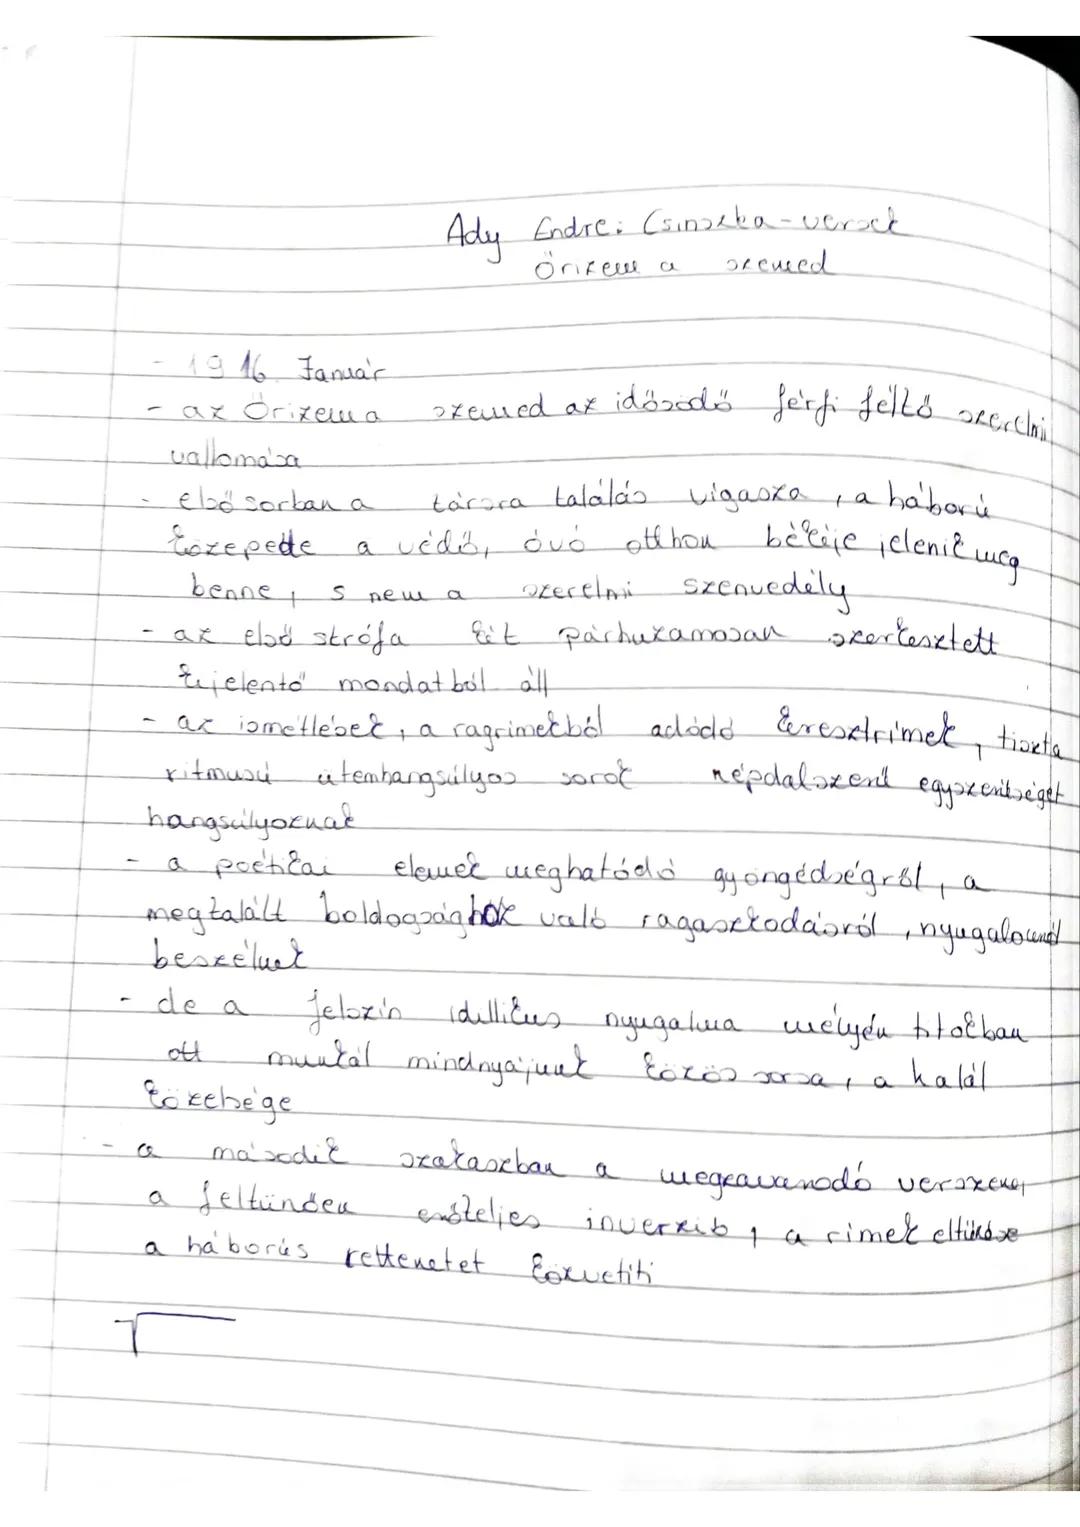 Ady Endre: Csinszka-versek
Őrizem a szemed
- 1916 Január
- az Őrizem a szemed az idősödő férfi féltő szerelmi
vallomása
- elsősorban a társra találás vigasza, a háború
közepette a védő, óvó otthon békéje jelenik meg
benne, s nem a szerelmi szenvedély
- az első strófa két párhuzamosan szerkesztett
kijelentő mondatból áll
- az ismétlések, a ragrímekből adódó keresztrímek, tiszta
ritmusú ütemhangsúlyos sorok népdalszerű egyszerűségét
hangsúlyoznak
- a poétikai elemek meghatódó gyöngédségről, a
megtalált boldogsághoz való ragaszkodásról, nyugalomról
beszélnek
- de a felszín idillikus nyugalma mélyén titokban
ott munkál mindnyájunk közös sorsa, a halál
közelsége
- a második szakaszban a megzavarodó versszene,
a feltűnően erőteljes inverzió, a rímek eltűnése
a háborús rettenetet közvetíti